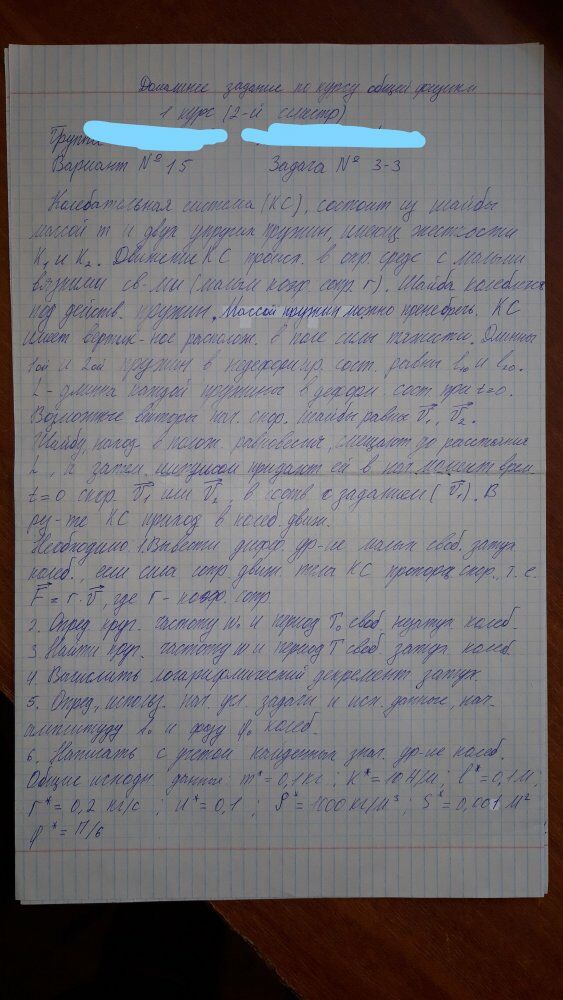 Домашнее задание по курсу общей физики
1 курс (2-й семестр)
Группа
Вариант № 15 Задача № 3-3
Колебательная система (КС), состоит из шайбы
массой m и двух упругих пружин, имеющ. жесткости
K₁ и K₂. Движение КС происх. в опр. среде с малыми
вязкими св-ми (малым коэф. сопр. r). Шайба колеблется
под действ. пружин. Массой пружин можно пренебречь. КС
имеет вертик-ное располож. в поле силы тяжести. Длины
1ой и 2ой пружин в недеформир. сост. равны l₁₀ и l₂₀.
L - длина каждой пружины в деформ. сост. при t=0.
Возможные векторы нач. скор. шайбы равны V⃗₁, V⃗₂.
Шайбу, наход. в полож. равновесия, смещают до расстояния
L, а затем импульсом придают ей в нач. момент врем.
t=0 скор. V⃗₁ или V⃗₂, в соотв с заданием (V⃗₁). В
рез-те КС приход. в колеб. движ.
Необходимо 1. Вывести дифф. ур-ие малых своб. затух.
колеб., если сила сопр. движ. тела КС пропорц. скор., т. е.
F⃗ = r·v⃗, где r - коэф. сопр.
2. Опред. круг. частоту ω₀ и период T₀ своб. незатух. колеб.
3. Найти круг. частоту ω и период T своб. затух. колеб.
4. Вычислить логарифмический декремент затух.
5. Опред., использ. нач. усл. задачи и исх. данные, нач.
амплитуду A₀ и фазу φ₀ колеб.
6. Написать с учетом найденных знач. ур-ие колеб.
Общие исходн данные: m* = 0,1 кг; K* = 10 Н/м; l* = 0,1 м;
r* = 0,2 кг/с; U* = 0,1; ρ* = 1000 кг/м³; S* = 0,001 м²
φ* = π/6